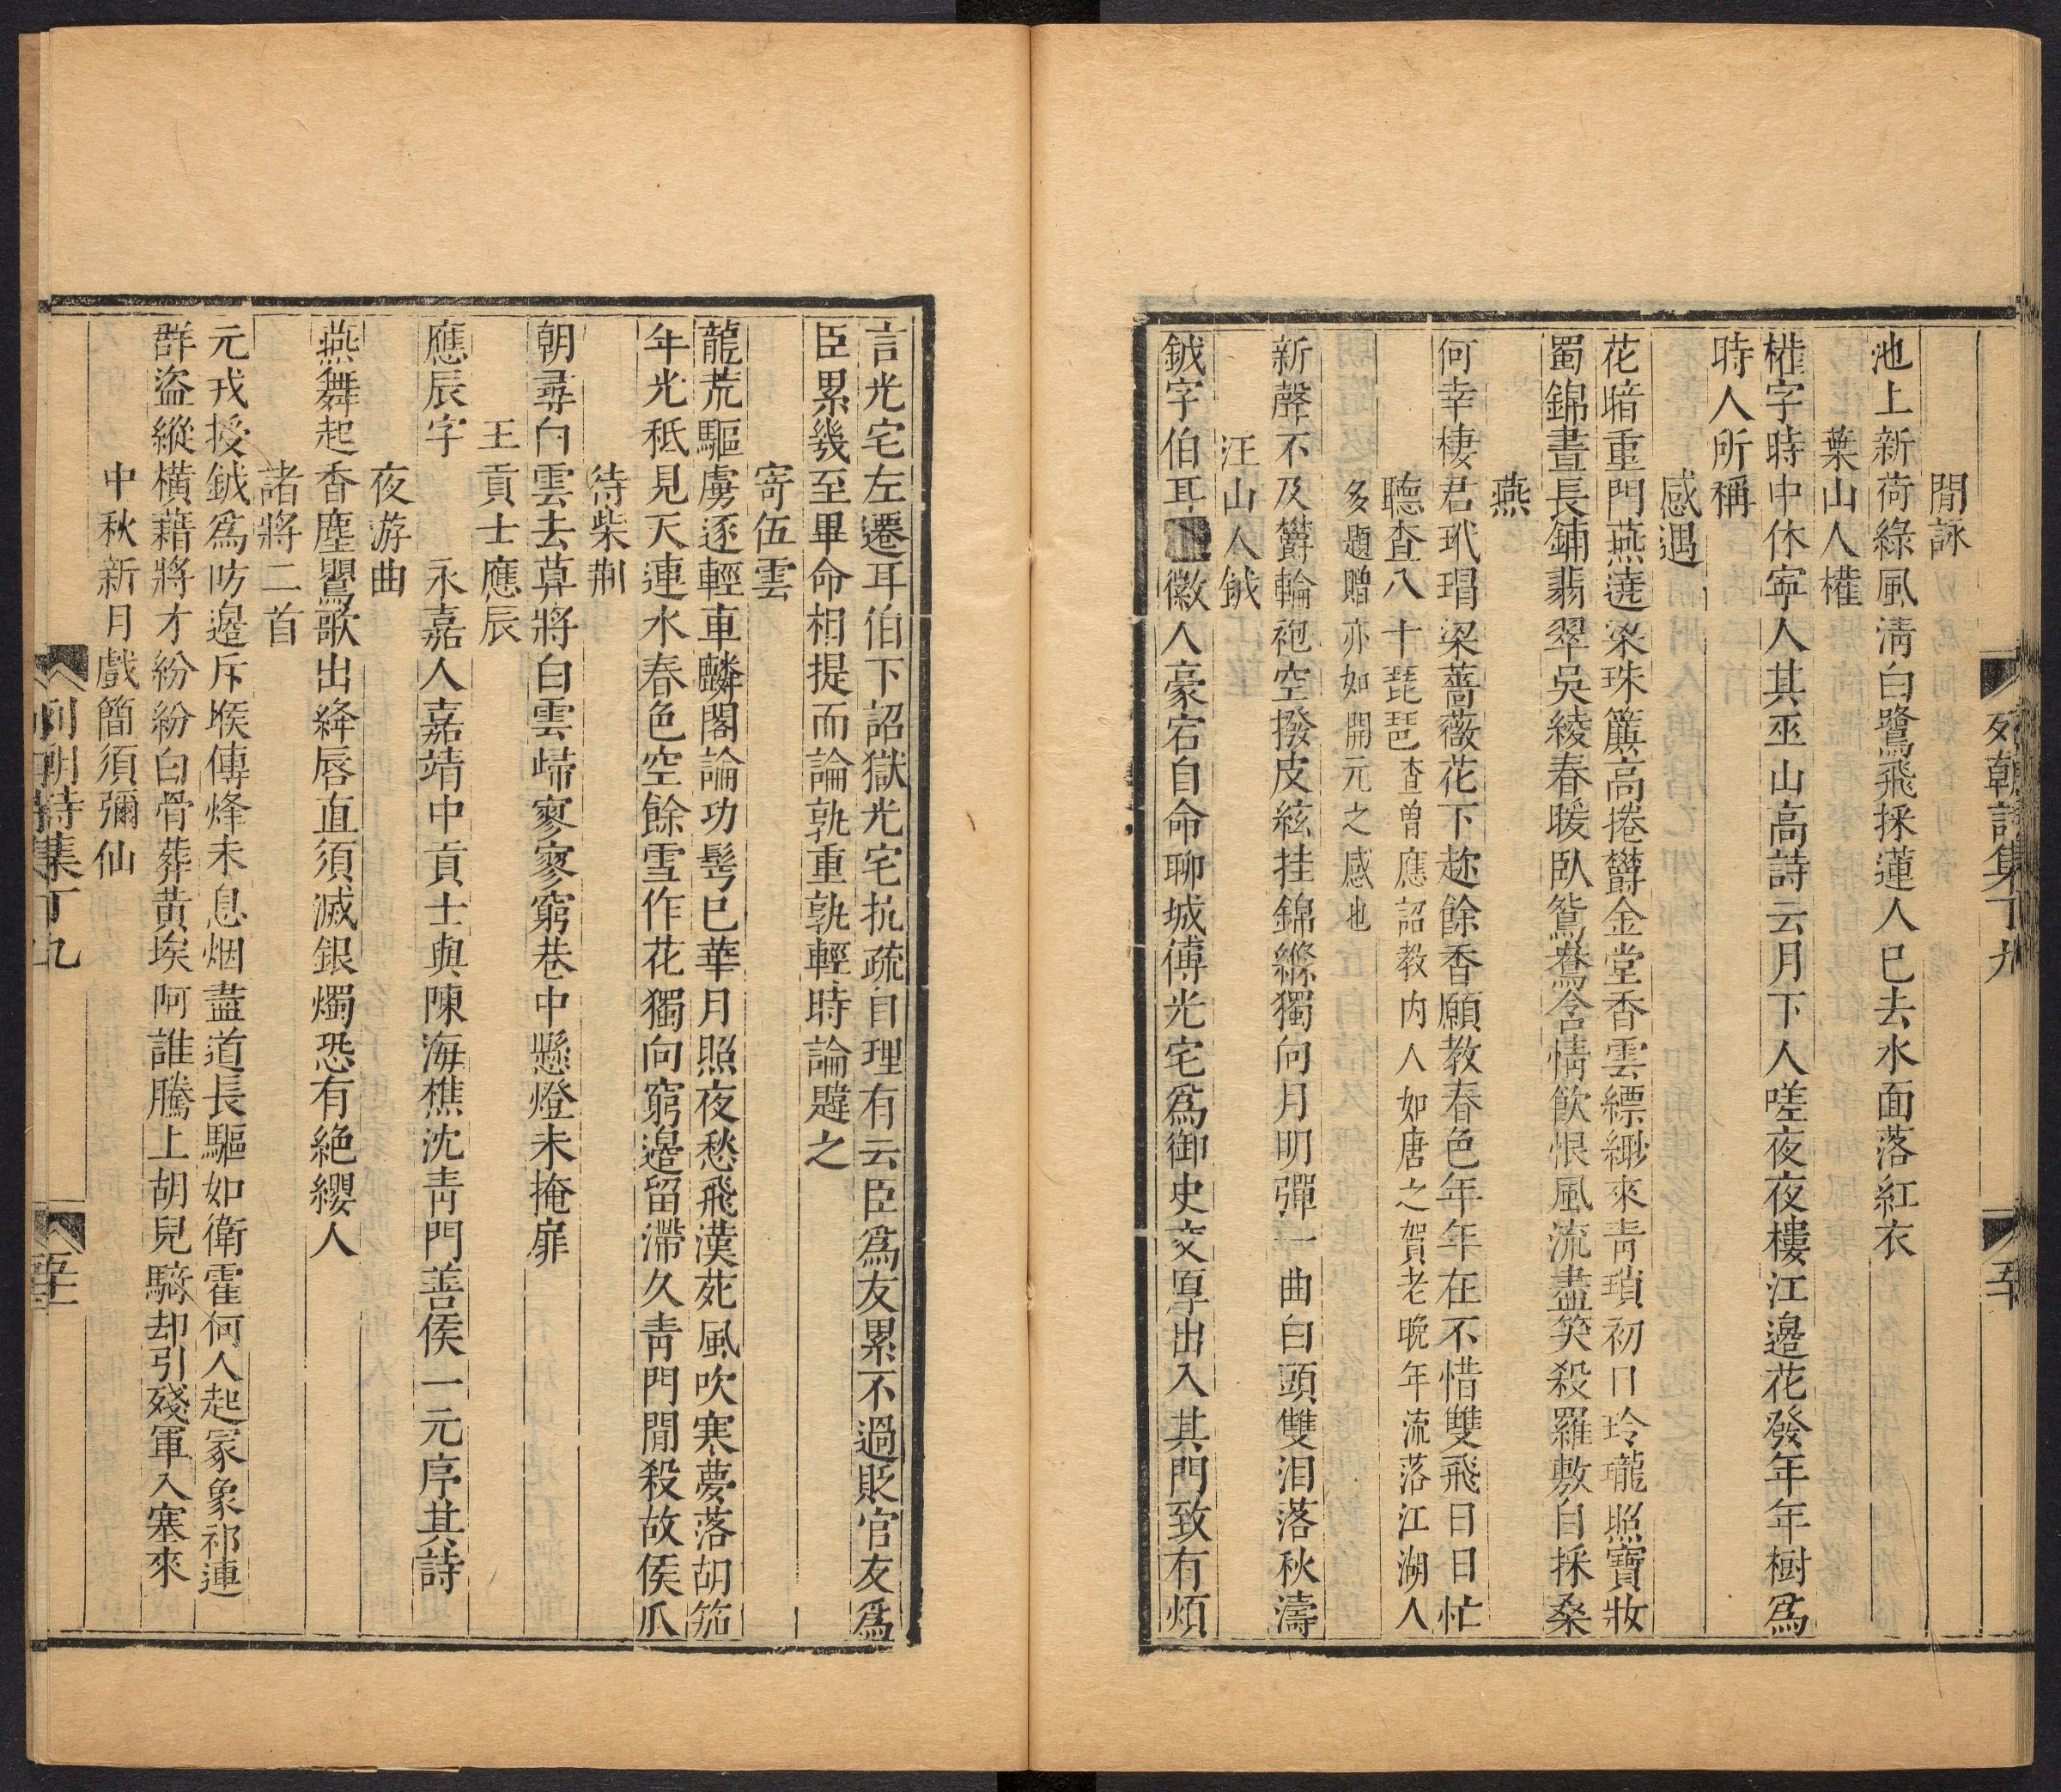 列朝詩集丁九
五十
閒詠
池上新荷綠風清白鷺飛採蓮人已去水面落紅衣
葉山人權
權字時中休寧人其巫山高詩云月下人嗟夜夜樓江邊花發年年樹爲
時人所稱
感遇
花暗重門燕遶梁珠簾高捲欝金堂香雲縹緲來靑瑣初日玲瓏照寶妝
蜀錦晝長鋪翡翠吳綾春暖臥鴛鴦含情飮恨風流盡笑殺羅敷自採桑
燕
何幸棲君玳瑁梁薔薇花下趂餘香願教春色年年在不惜雙飛日日忙
聽查八十琵琶查曾應詔教内人如唐之賀老晚年流落江湖人
多題贈亦如開元之感也
新聲不及欝輪袍空撥皮絃挂錦縧獨向月明彈一曲白頭雙泪落秋濤
汪山人鉞
鉞字伯耳徽人豪宕自命聊城傅光宅爲御史交厚出入其門致有煩
言光宅左遷耳伯下詔獄光宅抗疏自理有云臣爲友累不過貶官友爲
臣累幾至畢命相提而論孰重孰輕時論韙之
寄伍雲
龍荒驅虜逐輕車麟閣論功髩已華月照夜愁飛漢苑風吹寒夢落胡笳
年光秪見天連水春色空餘雪作花獨向窮邉留滯久靑門閒殺故侯瓜
待柴荆
朝尋白雲去莫將白雲歸寥寥窮巷中懸燈未掩扉
王貢士應辰
應辰字　　永嘉人嘉靖中貢士與陳海樵沈靑門善侯一元序其詩
夜游曲
燕舞起香塵鸎歌出絳唇直須滅銀燭恐有絶纓人
諸將二首
元戎授鉞爲防邉斥堠傳烽未息烟盡道長驅如衛霍何人起冢象祁連
群盜縱横藉將才紛紛白骨葬黄埃阿誰騰上胡兒騎却引殘軍入塞來
中秋新月戲簡須彌仙
列朝詩集丁九
五十一